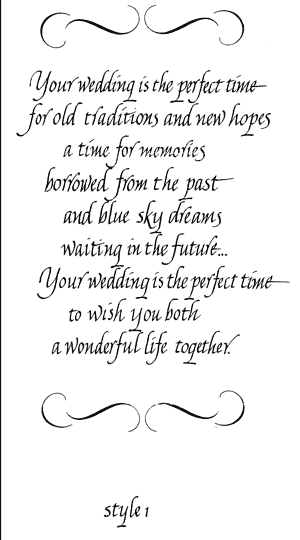 Your wedding is the perfect time
for old traditions and new hopes
a time for memories
borrowed from the past
and blue sky dreams
waiting in the future...
Your wedding is the perfect time
to wish you both
a wonderful life together.
style 1